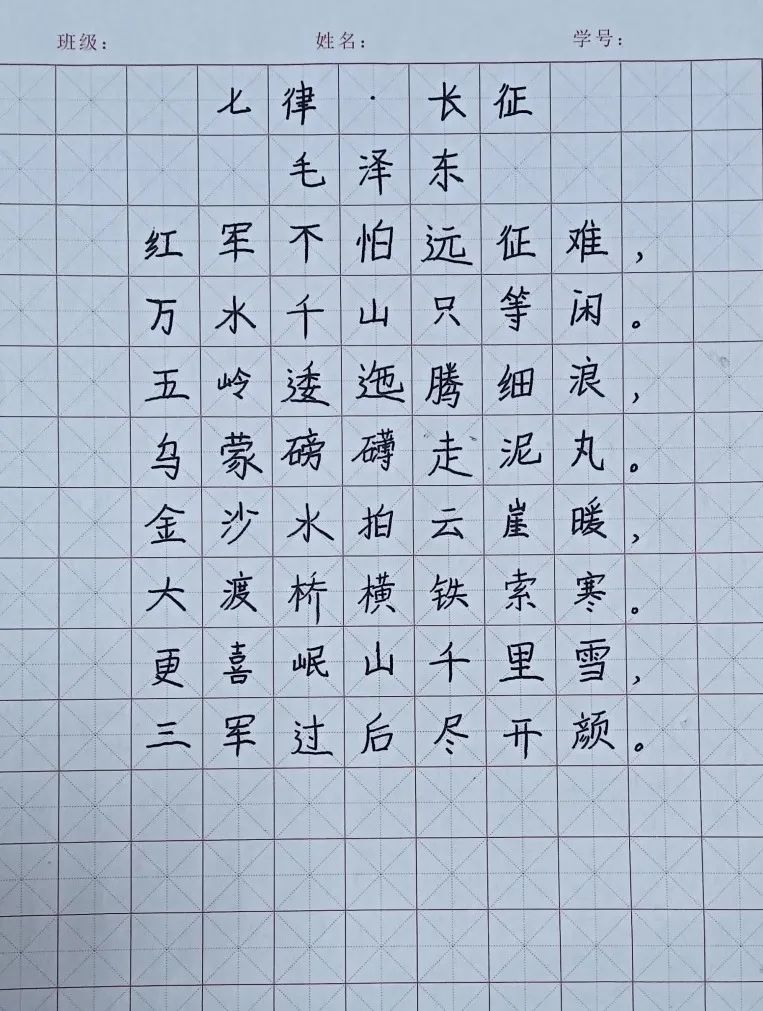 班级： 姓名： 学号：
七律·长征
毛泽东
红军不怕远征难，
万水千山只等闲。
五岭逶迤腾细浪，
乌蒙磅礴走泥丸。
金沙水拍云崖暖，
大渡桥横铁索寒。
更喜岷山千里雪，
三军过后尽开颜。